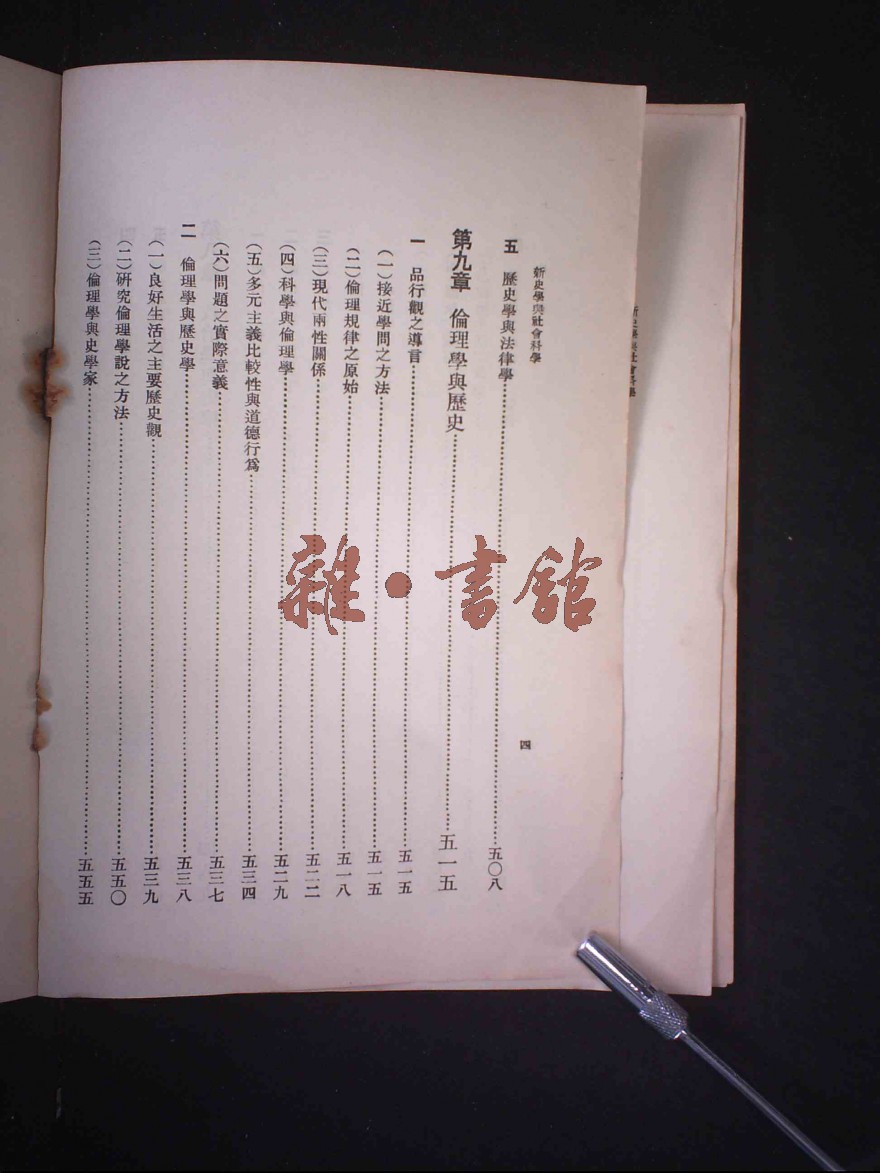 新史學與社會科學
四
五　歷史學與法律學……五〇八
第九章　倫理學與歷史……五一五
一　品行觀之導言……五一五
(一)接近學問之方法……五一五
(二)倫理規律之原始……五一八
(三)現代兩性關係……五二二
(四)科學與倫理學……五二九
(五)多元主義比較性與道德行爲……五三四
(六)問題之實際意義……五三七
二　倫理學與歷史學……五三八
(一)良好生活之主要歷史觀……五三九
(二)研究倫理學說之方法……五五〇
(三)倫理學與史學家……五五五
新史學與社會科學
雜・書館